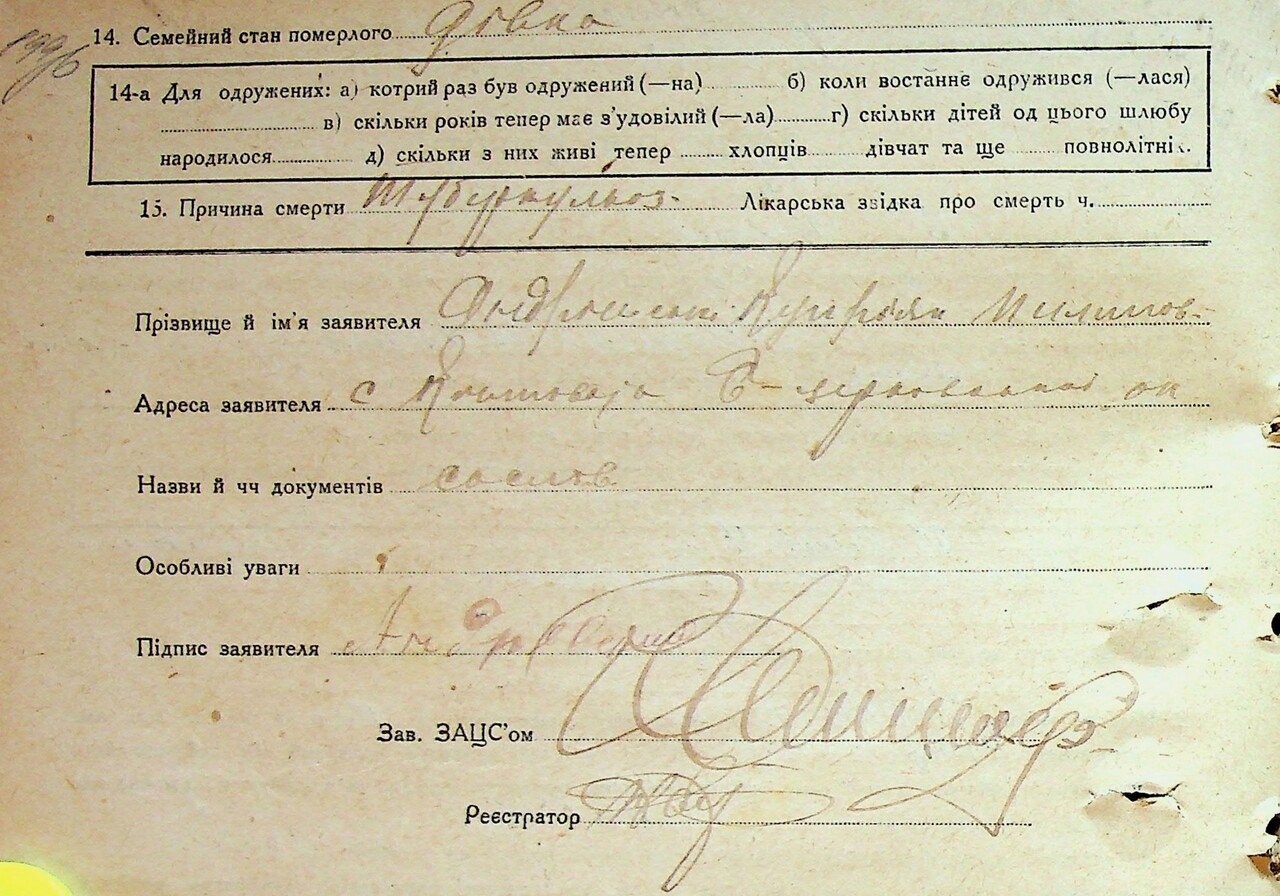 14. Семейний стан померлого дівка
14-а Для одружених: а) котрий раз був одружений (—на) ........ б) коли востаннє одружився (—лася)
........ в) скільки років тепер має з'удовілий (—ла) ........ г) скільки дітей од цього шлюбу
народилося ........ д) скільки з них живі тепер ........ хлопців ........ дівчат та ще ........ повнолітніх.
15. Причина смерти Туберкульоз. Лікарська звідка про смерть ч. ........
Прізвище й ім'я заявителя Купріян
Адреса заявителя с Б-церковської ок
Назви й чч документів
Особливі уваги
Підпис заявителя
Зав. ЗАЦС'ом
Реєстратор